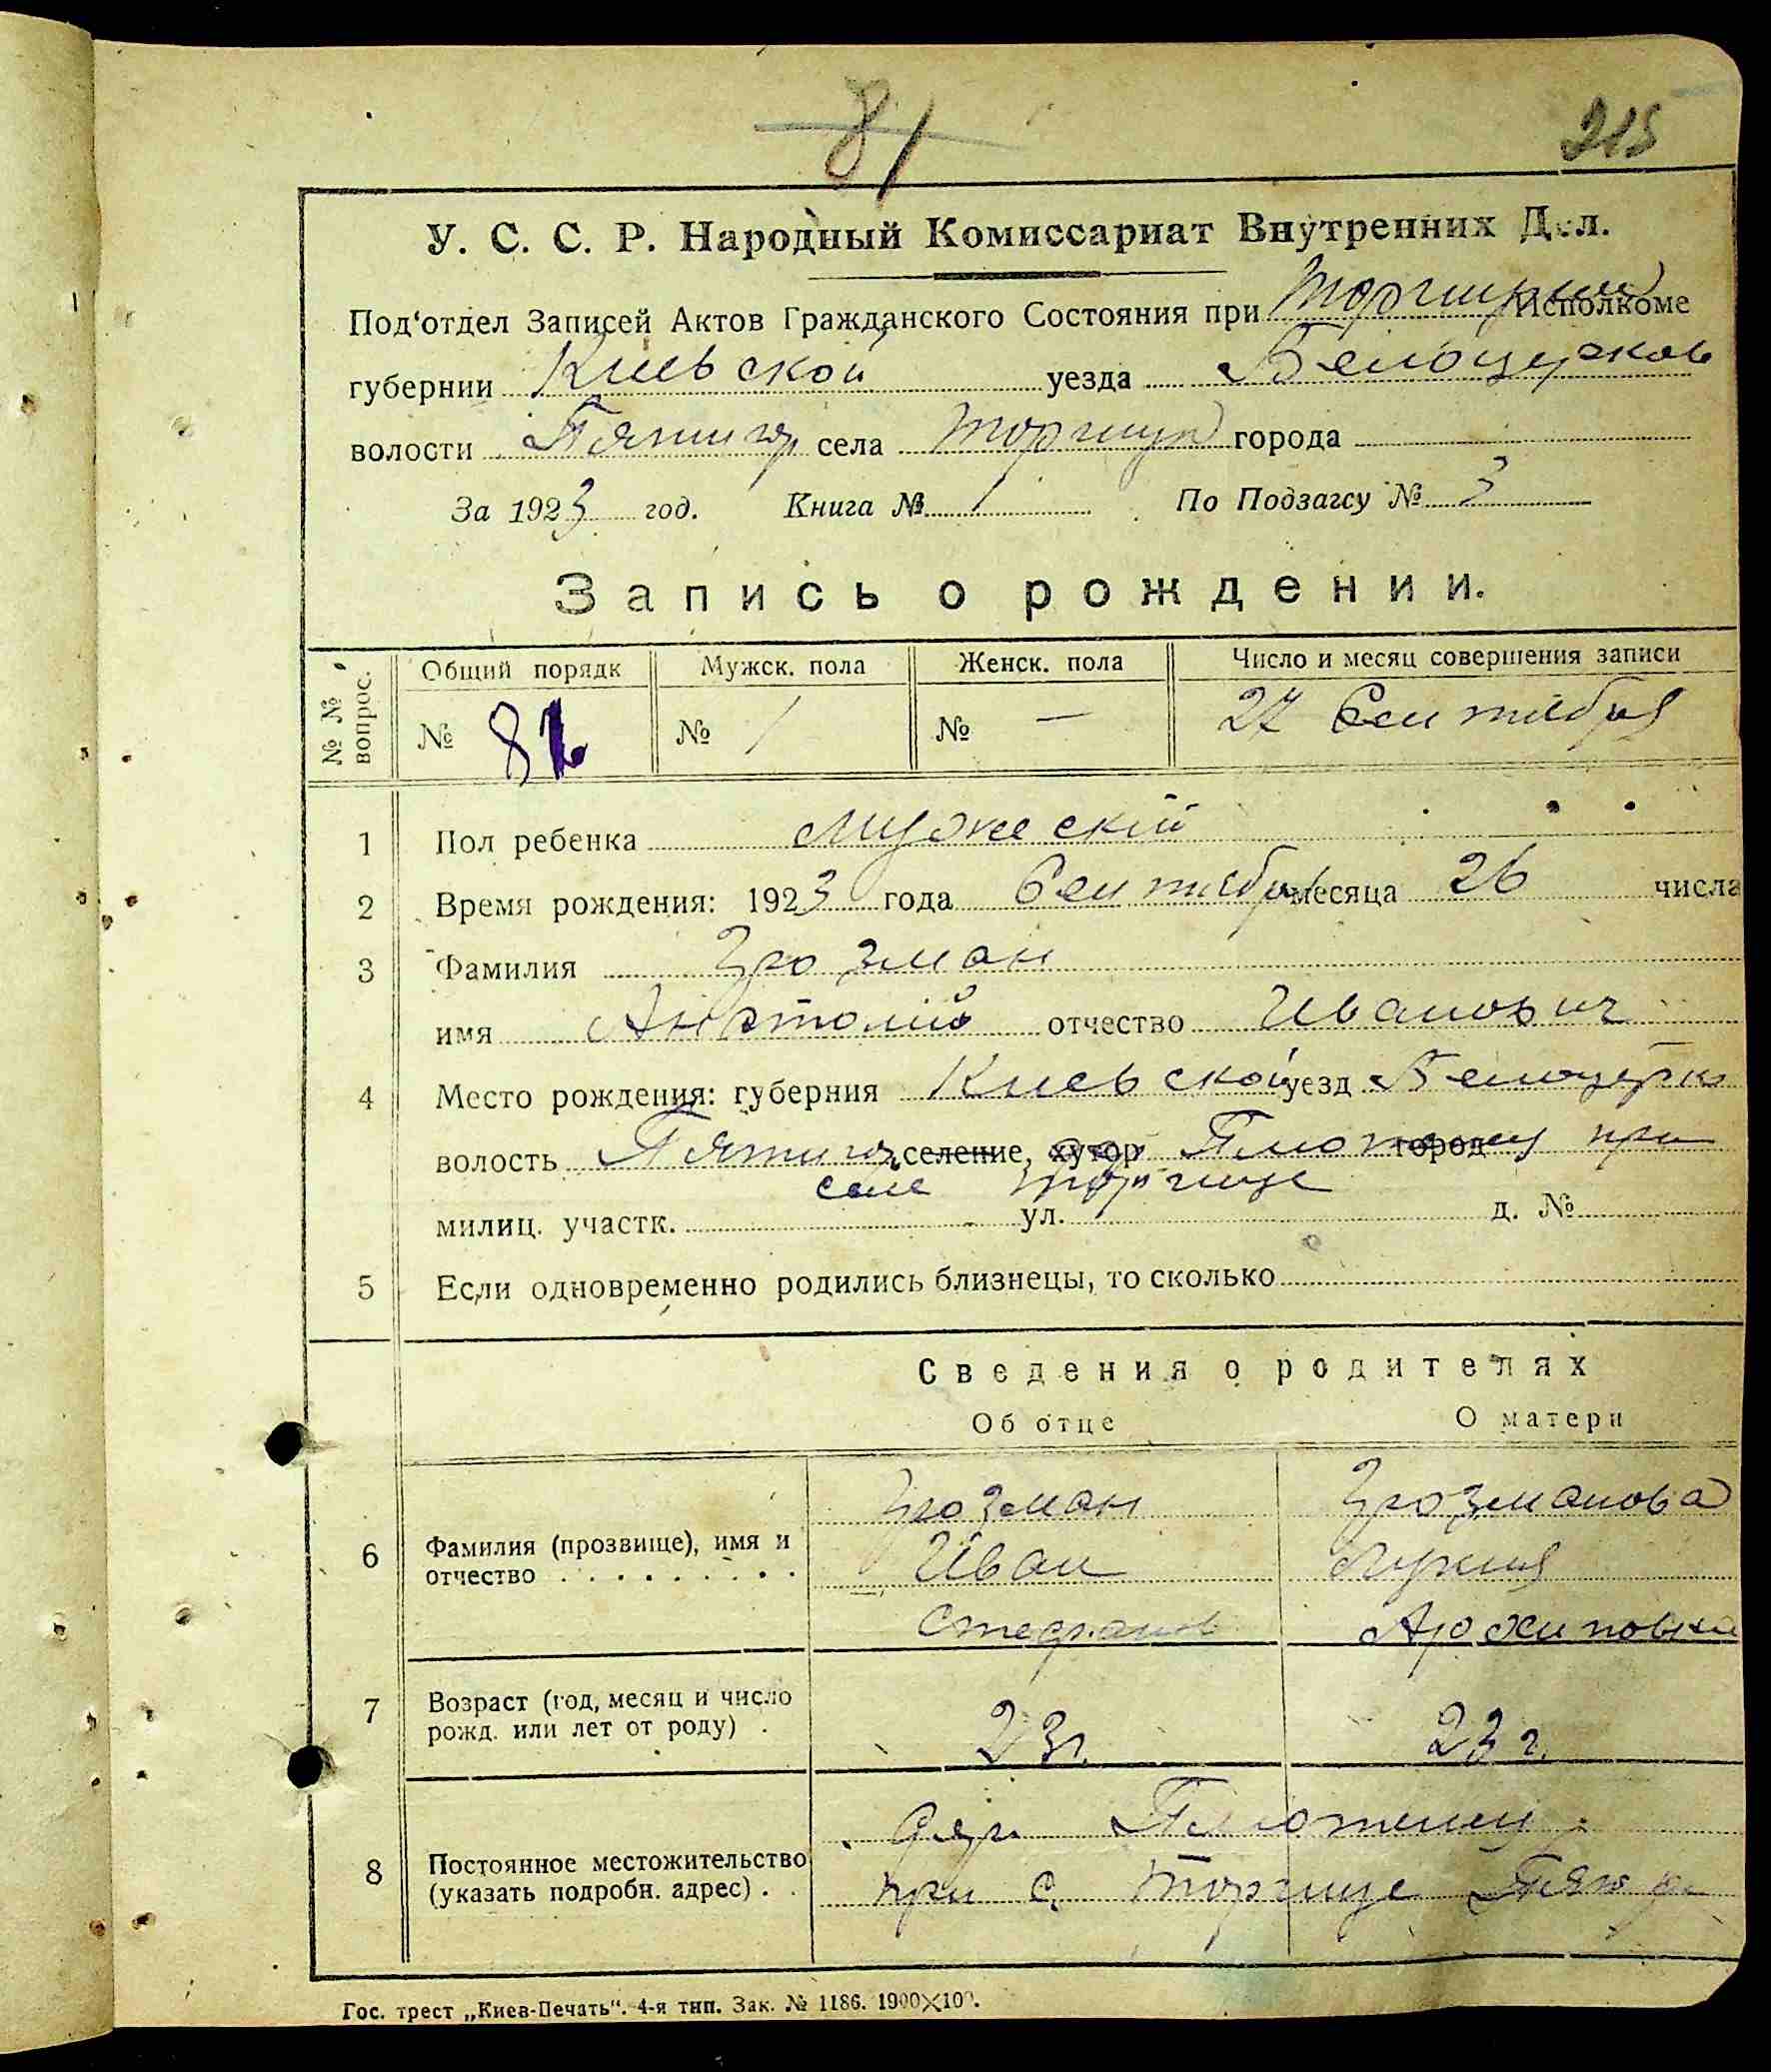 81
215
У. С. С. Р. Народный Комиссариат Внутренних Дел.
Под‘отдел Записей Актов Гражданского Состояния при Исполкоме
губернии Киевской уезда Белоцерков
волости Пятигор села Торчица города
За 1923 год. Книга № 1 По Подзагсу № 3
Запись о рождении.
№ № вопрос. Общий порядк Мужск. пола Женск. пола Число и месяц совершения записи
№ № 1 № — 27 Сентября
1 Пол ребенка мужеский
2 Время рождения: 1923 года Сентября месяца 26 числа
3 Фамилия Грозман
имя Анатолий отчество Иванович
4 Место рождения: губерния Киевской уезд Белоцерк
волость Пятигор, селение, хутор город при
селе Торчице
милиц. участк. ул. д. №
5 Если одновременно родились близнецы, то сколько
Сведения о родителях
Об отце О матери
6 Фамилия (прозвище), имя и отчество . . . . . . . . .
Грозман Грозманова
Иван
Стефанов Архиповна
7 Возраст (год, месяц и число рожд. или лет от роду) .
23 г. 23 г.
8 Постоянное местожительство (указать подробн. адрес) . .
дер.
при с. Торчице
Гос. трест „Киев-Печать“. 4-я тип. Зак. № 1186. 1900×100.